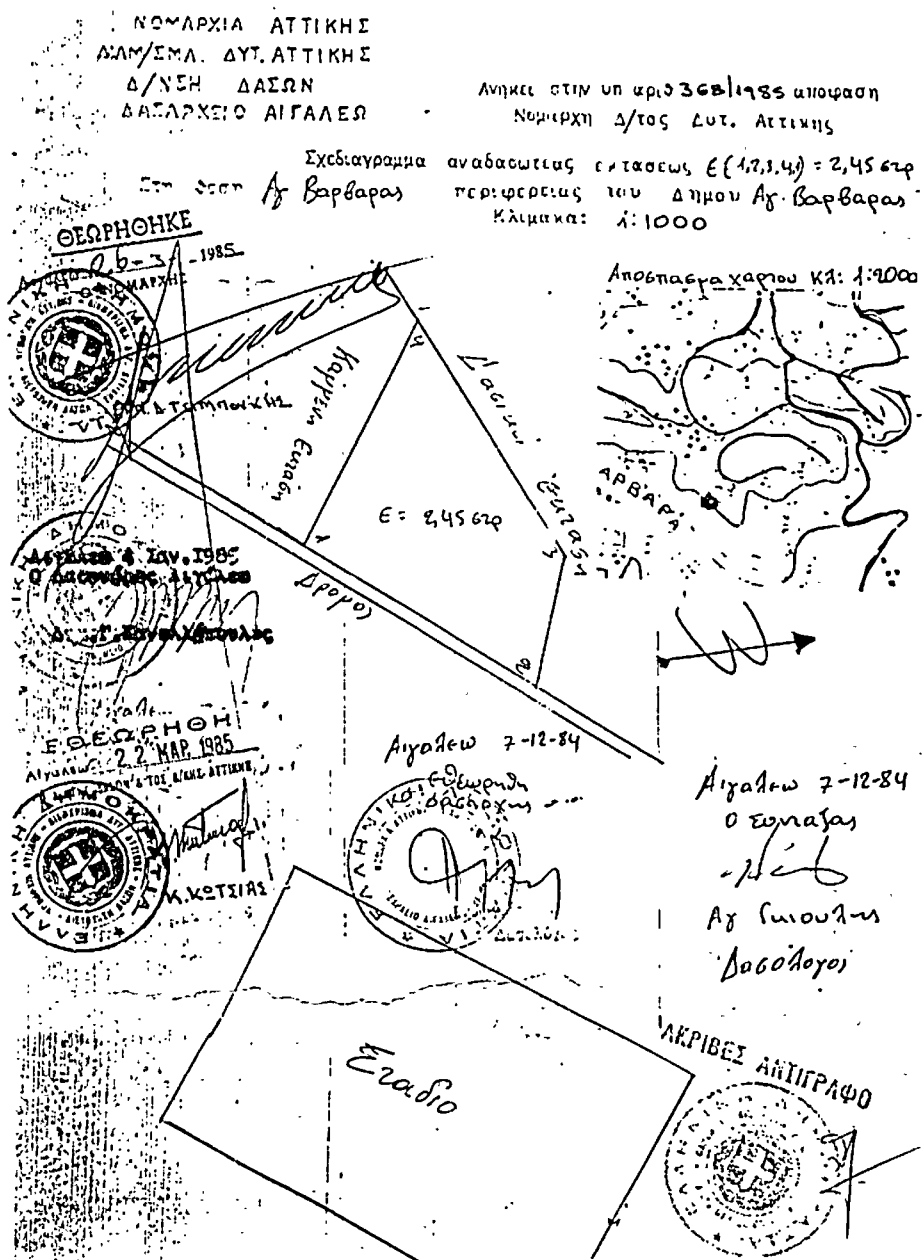 ΝΟΜΑΡΧΙΑ ΑΤΤΙΚΗΣ
ΔΙΑΜ/ΣΜΑ. ΔΥΤ. ΑΤΤΙΚΗΣ
Δ/ΝΣΗ ΔΑΣΩΝ
ΔΑΣΑΡΧΕΙΟ ΑΙΓΑΛΕΩ
Ανηκει στην υπ αριθ 368/1985 αποφαση
Νομαρχη Δ/τος Δυτ. Αττικης
Σχεδιαγραμμα αναδασωτεας εκτασεως Ε(1,2,3,4,1) = 2,45 στρ
Στη θεση Αγ Βαρβαρας περιφερειας του Δημου Αγ. Βαρβαρας
Κλιμακα: 1:1000
ΘΕΩΡΗΘΗΚΕ
1985
ΝΟΜΑΡΧΗΣ
Αποσπασμα χαρτου Κλ: 1:2000
4
Δασικη Εκταση
Καμμενη Εκταση
ΑΡΒΑΡΑ
Ε = 2,45 στρ
1
3
Δρομος
2
Αιγαλεω 4 Ιαν. 1985
Ο Δασονομος Αιγαλεω
ΕΘΕΩΡΗΘΗ
Αιγαλεω 22 ΜΑΡ. 1985
Κ. ΚΩΤΣΙΑΣ
Αιγαλεω 7-12-84
Εθεωρηθη
Δασαρχης
Αιγαλεω 7-12-84
Ο Συνταξας
Αγ Γκιουλης
Δασολόγος
Σταδιο
ΑΚΡΙΒΕΣ ΑΝΤΙΓΡΑΦΟ